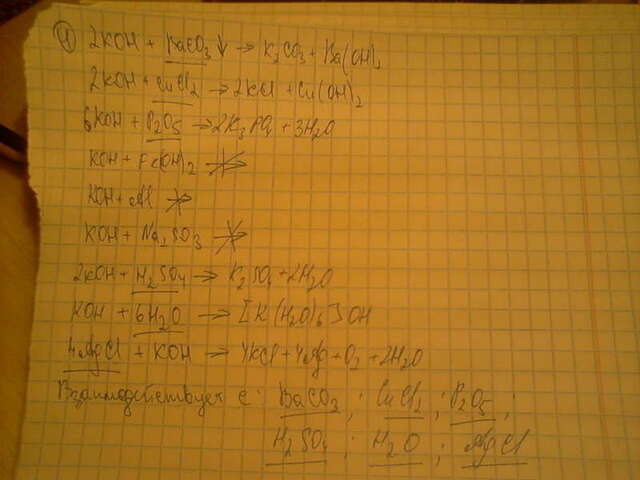 ① 2KOH + BaCO₃↓ → K₂CO₃ + Ba(OH)₂
2KOH + CuCl₂ → 2KCl + Cu(OH)₂
6KOH + P₂O₅ → 2K₃PO₄ + 3H₂O
KOH + Fe(OH)₂ ↛
KOH + Al ↛
KOH + Na₂SO₃ ↛
2KOH + H₂SO₄ → K₂SO₄ + 2H₂O
KOH + 6H₂O → [K(H₂O)₆]OH
4AgCl + KOH → 4KCl + 4Ag + O₂ + 2H₂O
Взаимодействует с: BaCO₃ ; CuCl₂ ; P₂O₅ ;
H₂SO₄ ; H₂O ; AgCl